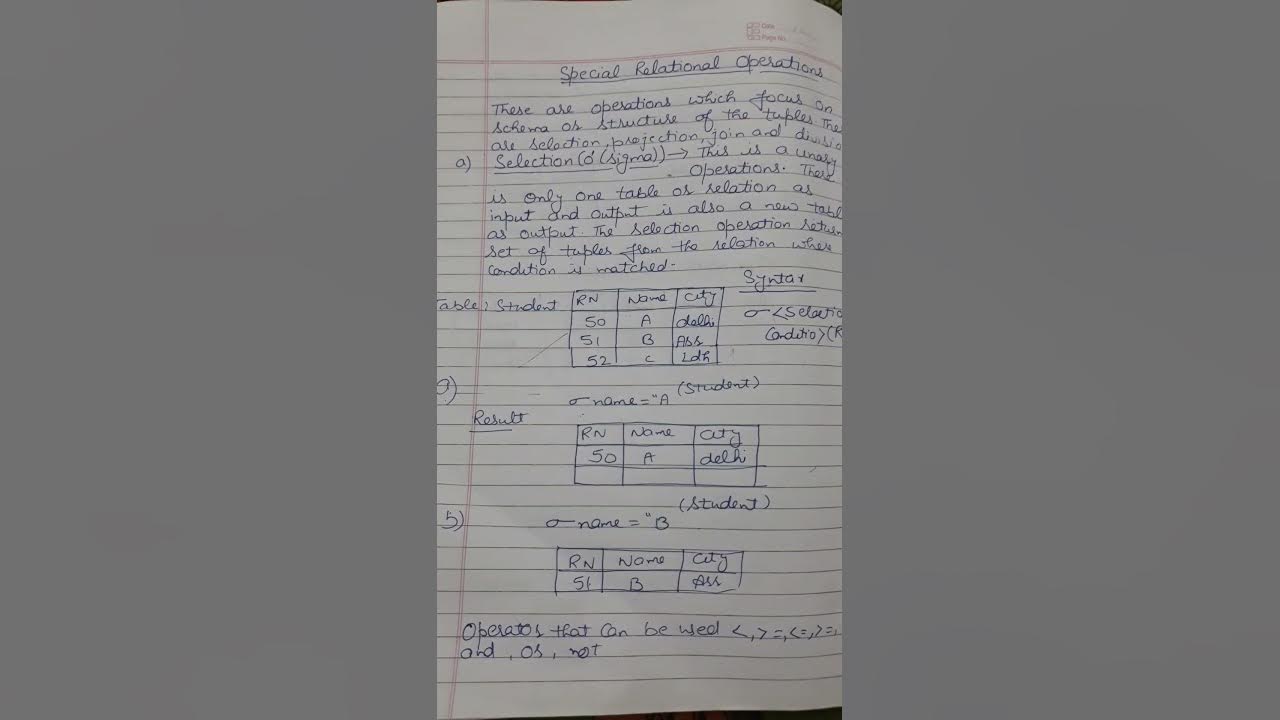 Date
Page No.
Special Relational Operations
These are operations which focus on
schema or structure of the tuples The
are selection, projection, join and divisio
a) Selection (σ (sigma)) → This is a unary
Operations. There
is only one table or relation as
input and output is also a new tabl
as output. The selection operation return
set of tuples from the relation where
condition is matched.
Syntax
Table: Student
σ <Selectio
Conditio> (R
RN Name City
50 A delhi
51 B Ass
52 C Ldh
a) σ name = "A (Student)
Result
RN Name City
50 A delhi
b) σ name = "B (Student)
RN Name City
51 B Ass
Operators that can be used <, >=, <=, >=,
and, or, not